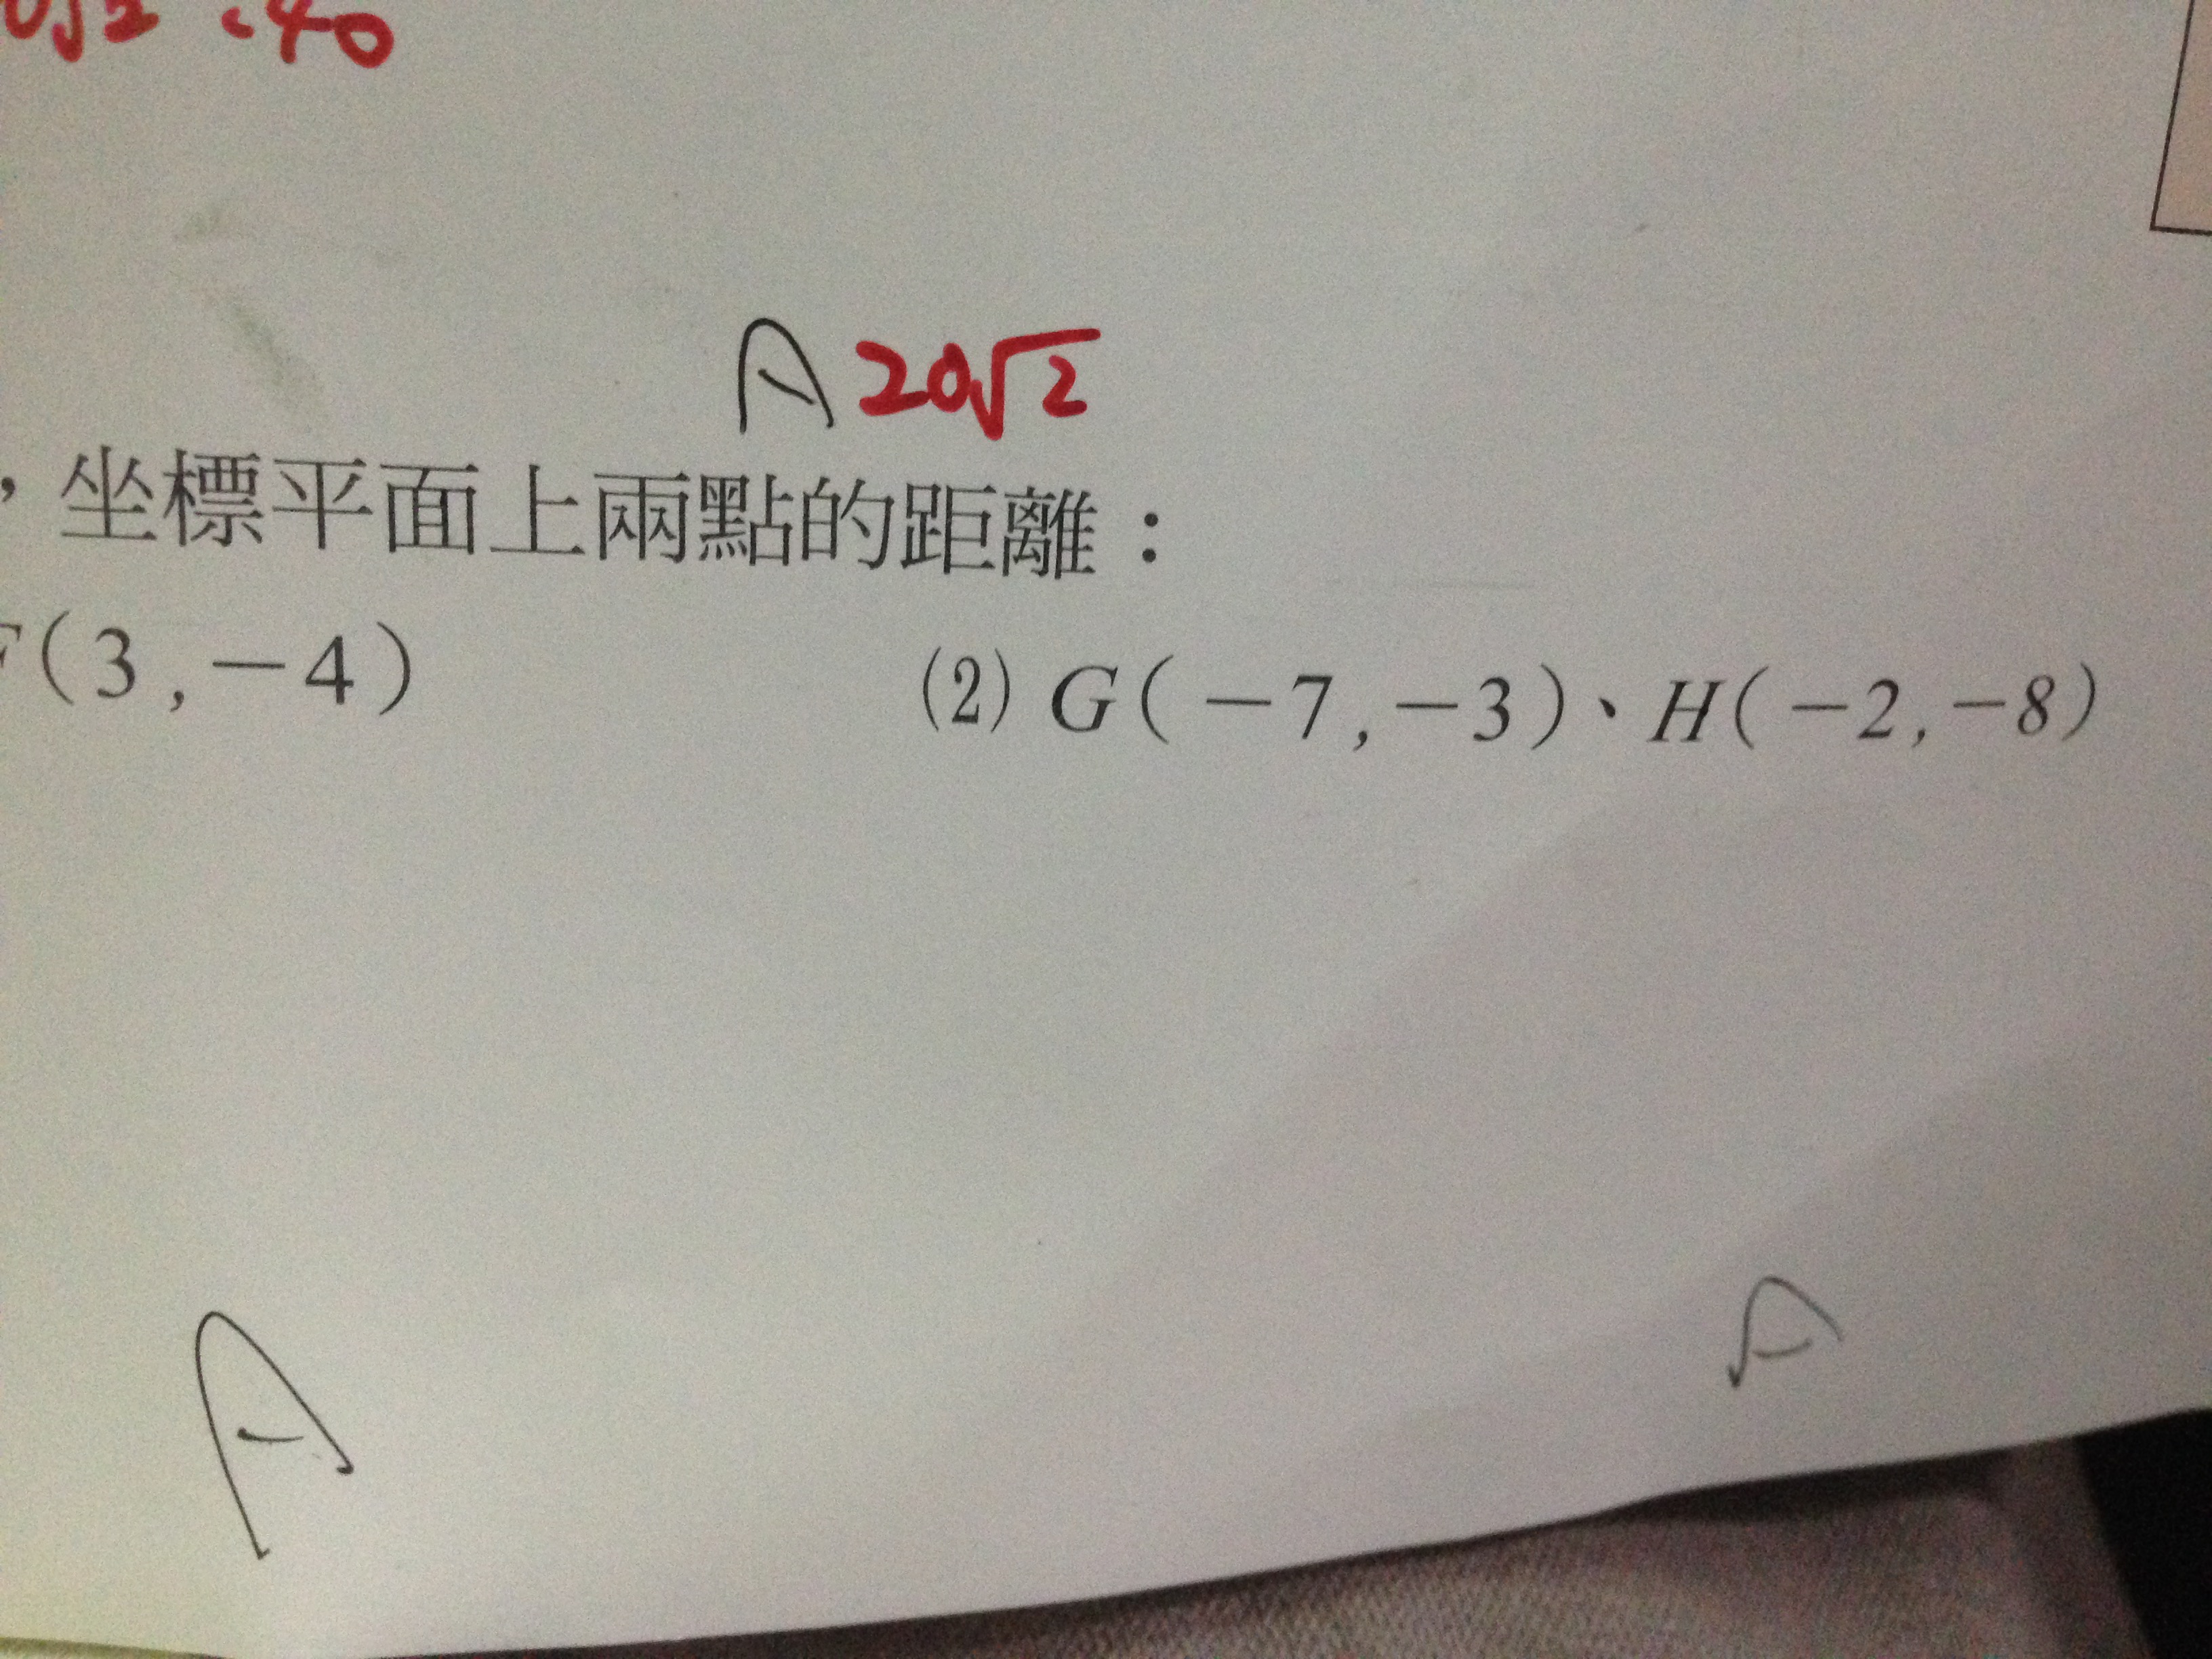 A 20√2
，坐標平面上兩點的距離：
(3,－4)
(2) G(－7,－3)、H(－2,－8)
A
A